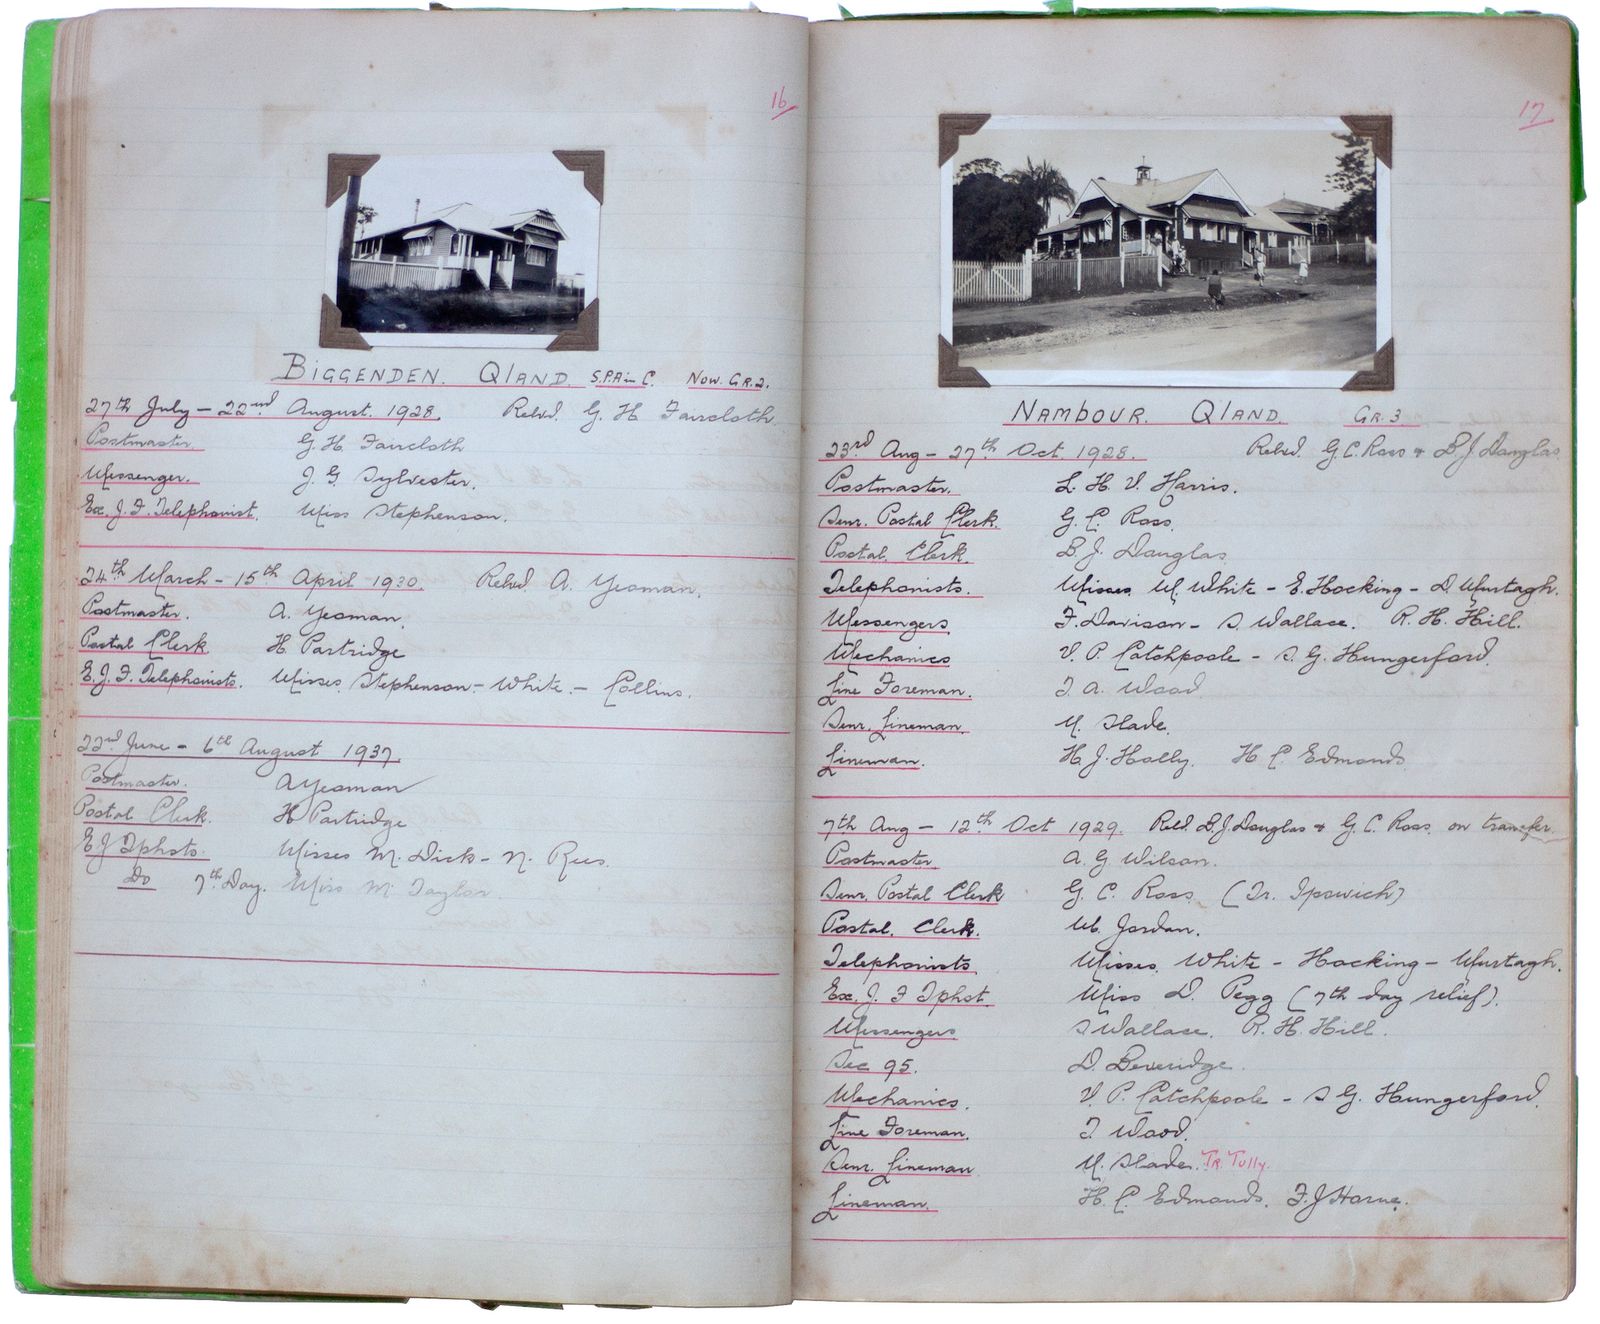 16
BIGGENDEN. QLAND. S.P.A in C. NOW. GR. 2.
27th July - 22nd August. 1928. Relvd. G. H. Faircloth
Postmaster. G. H. Faircloth
Messenger. J. G. Sylvester.
Ex. J. F. Telephonist. Miss Stephenson.
24th March - 15th April 1930. Relvd A. Yeoman.
Postmaster. A. Yeoman.
Postal Clerk H. Partridge
E. J. F. Telephonists. Misses. Stephenson - White. - Collins.
22nd June - 6th August 1937.
Postmaster. A Yeoman
Postal Clerk. H Partridge
E J Tphsts. Misses M. Dick - N. Rees.
Do 7th Day. Miss M. Taylor.
17
NAMBOUR. QLAND. GR. 3.
23rd Aug - 27th Oct. 1928. Relvd. G. C. Ross & B. J. Douglas
Postmaster. L. H. V. Harris.
Senr. Postal Clerk. G. C. Ross.
Postal. Clerk. B. J. Douglas
Telephonists. Misses. M. White - E. Hocking - D. Murtagh.
Messengers F. Davison - S. Wallace. R. H. Hill.
Mechanics V. P. Catchpoole - S. G. Hungerford.
Line Foreman. T. A. Wood
Senr. Lineman. M. Slade.
Lineman. H. J. Holly. H. C. Edmonds
7th Aug - 12th Oct 1929. Relvd. B. J. Douglas & G. C. Ross. on transfer.
Postmaster. A. G. Wilson.
Senr. Postal Clerk G. C. Ross (Tr. Ipswich)
Postal. Clerk. W. Jordan.
Telephonists. Misses. White - Hocking - Murtagh.
Ex. J. F Tphst. Miss D. Pegg (7th day relief).
Messengers S Wallace. R. H. Hill.
Sec 95. D. Beveridge.
Mechanics. V. P. Catchpoole - S G. Hungerford.
Line Foreman. T. Wood.
Senr. Lineman M. Slade. TR. TULLY.
Lineman. H. C. Edmonds. F. J Horne.